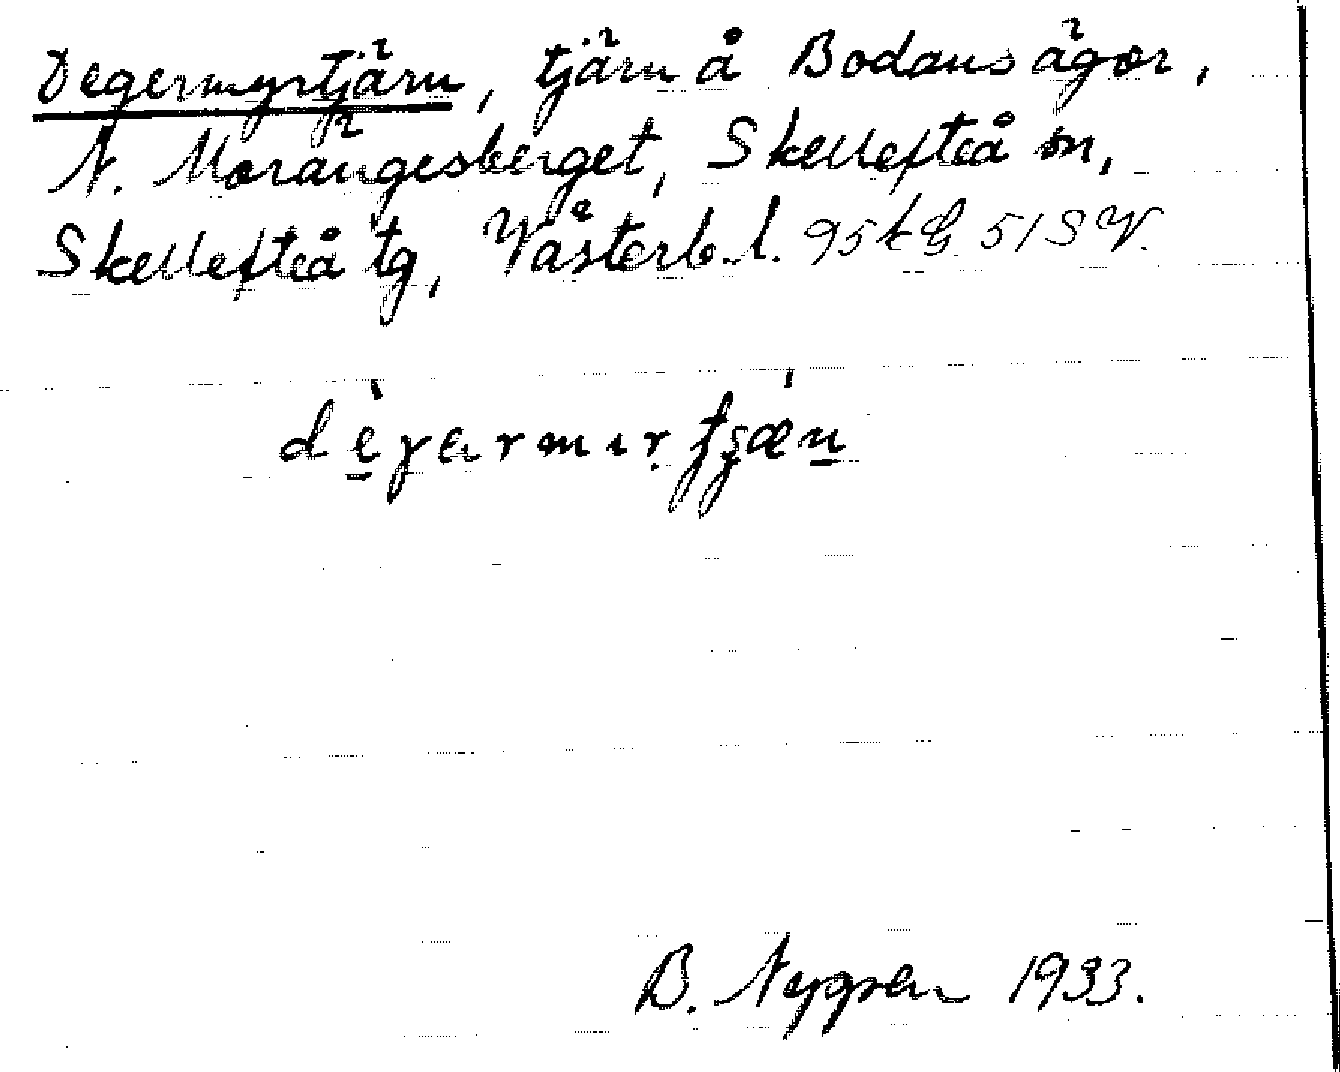 Degermyrtjärn, tjärn å Bodans ägor,
N. Morängesberget, Skellefteå sn,
Skellefteå tg, Västerb. l. 95 k G 51 SV.
dèɣarmırtʂæn
B. Nygren 1933.